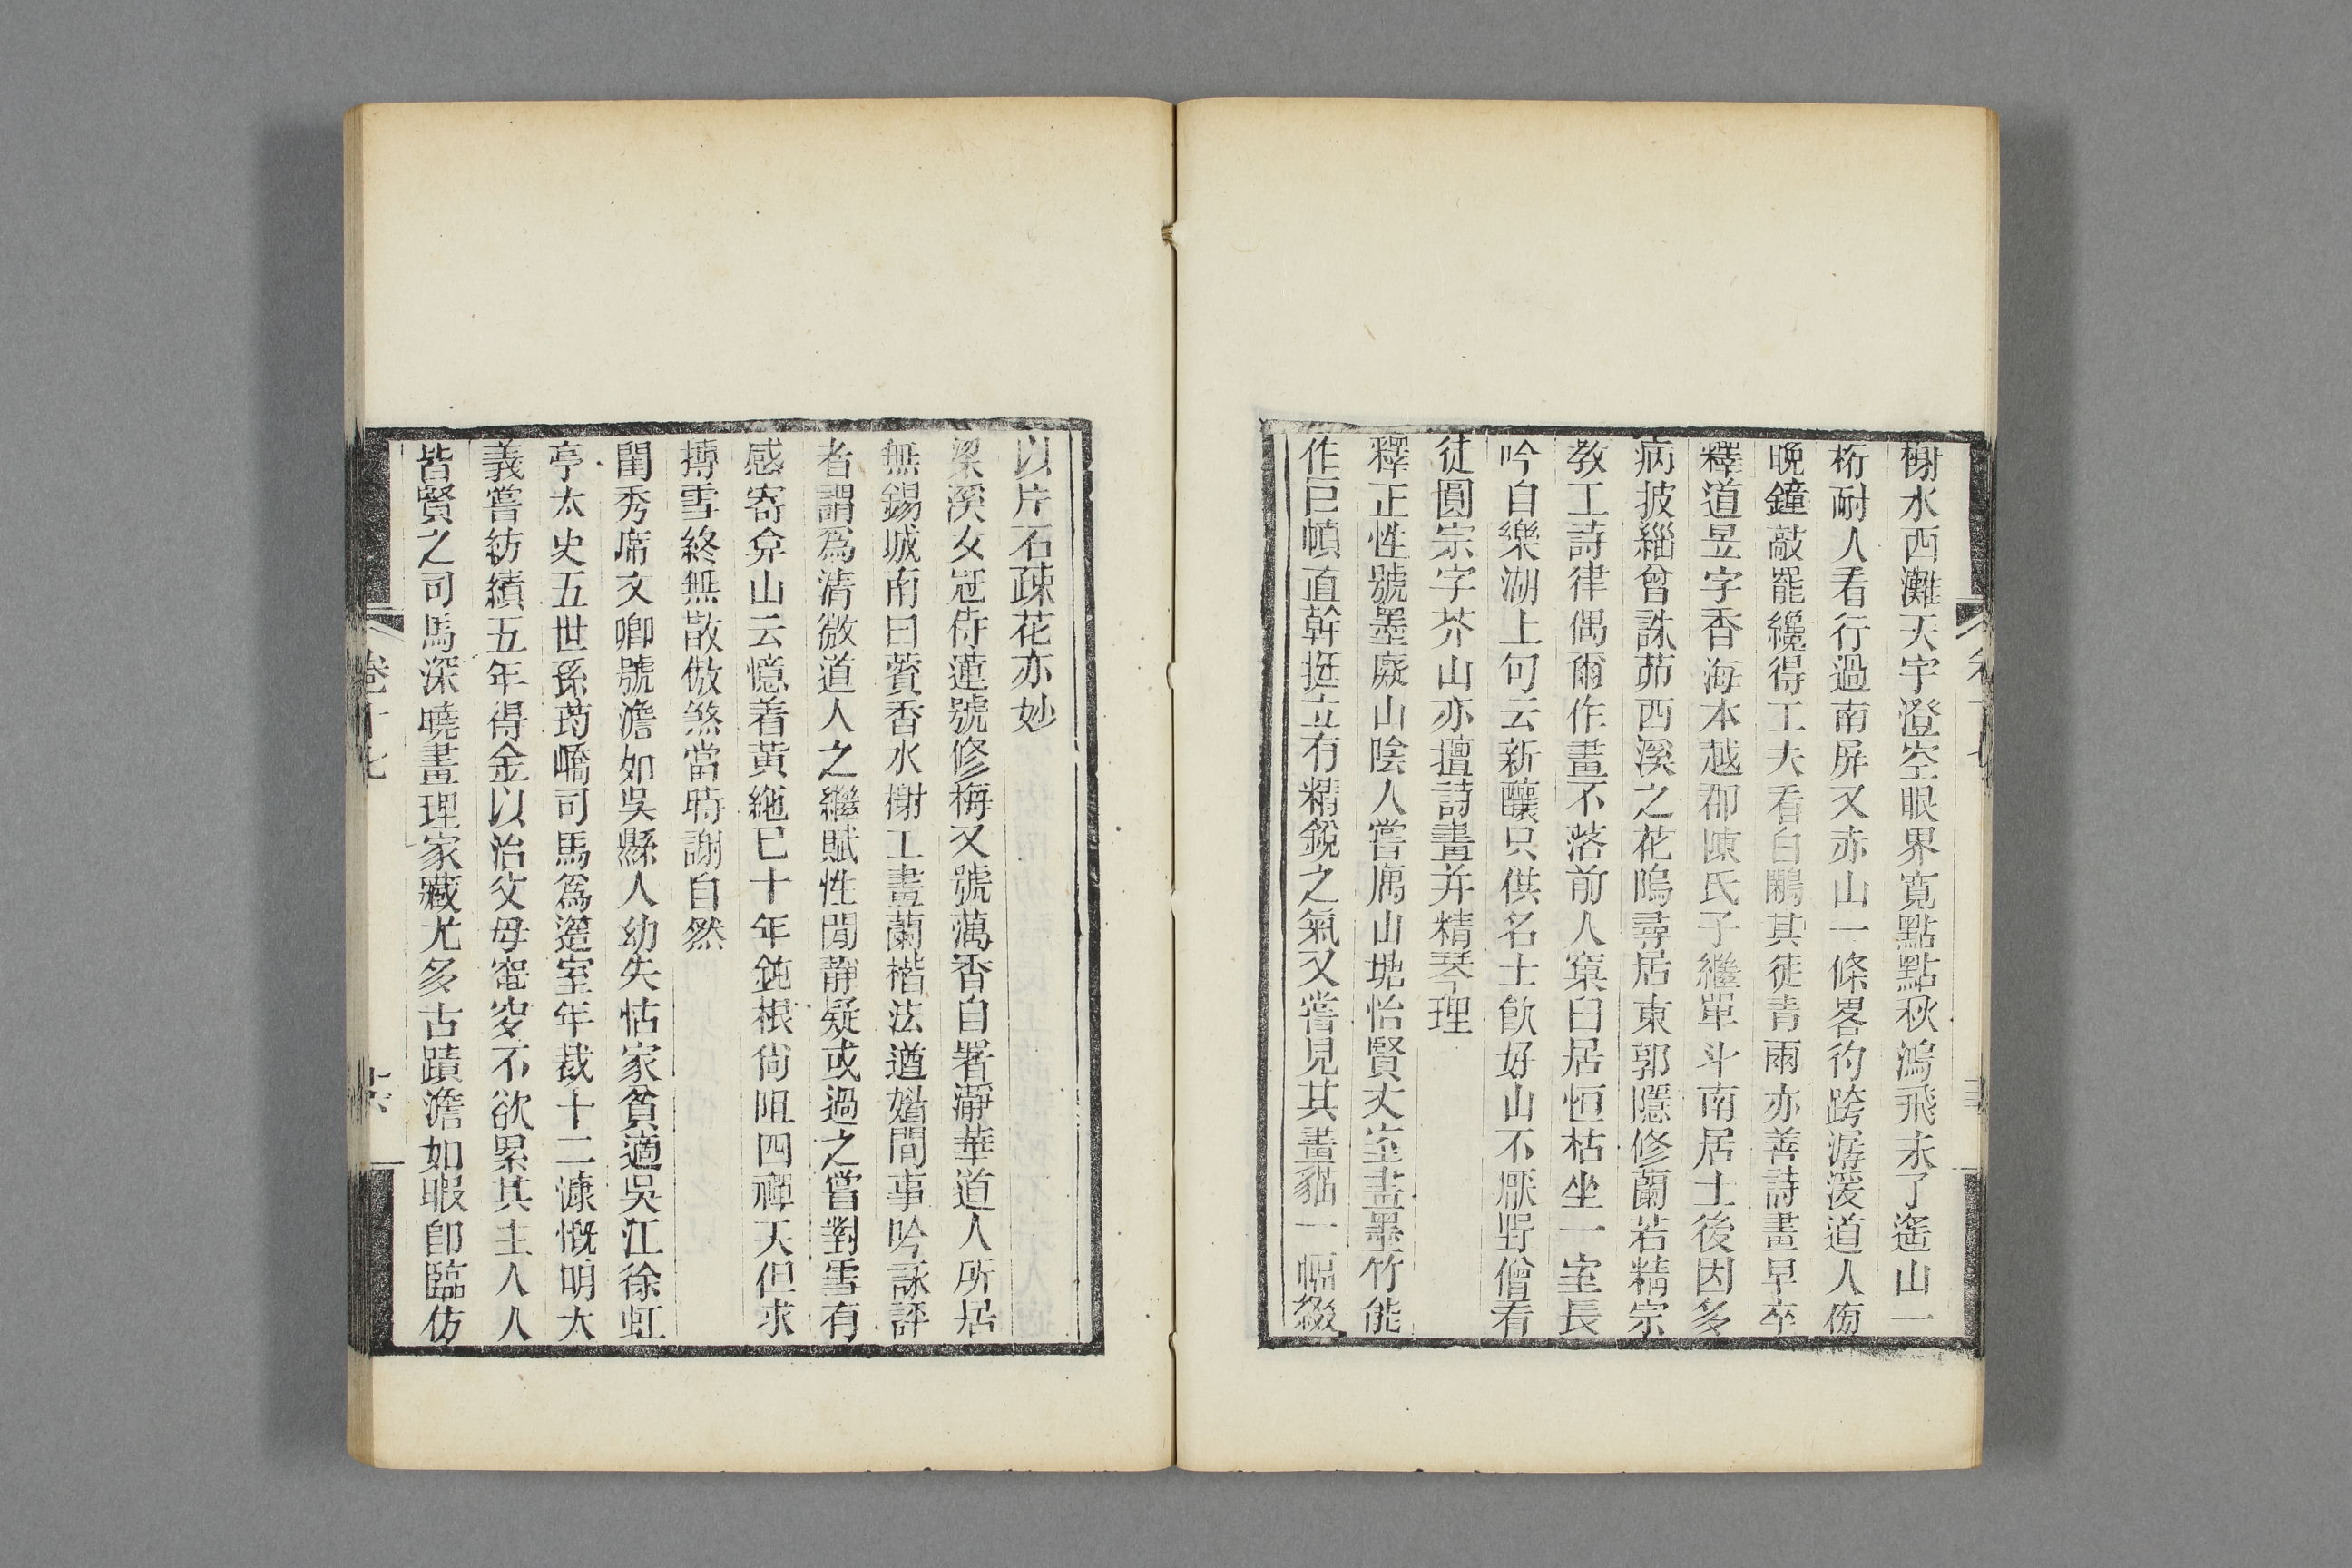 榭水西灘天宇澄空眼界寛點點秋鴻飛未了遥山一
桁耐人看行過南屏又赤山一條畧彴跨潺湲道人倚
晚鐘敲罷纔得工夫看白鷴其徒青雨亦善詩畫早卒
釋道昱字香海本越郡陳氏子繼單斗南居士後因多
病披緇曾誅茆西溪之花隖尋居東郭隱修蘭若精宗
教工詩律偶爾作畫不落前人窠臼居恒枯坐一室長
吟自樂湖上句云新釀只供名士飲好山不厭野僧看
徒圓宗字芥山亦擅詩畫并精琴理
釋正性號墨癡山陰人嘗寓山塘怡賢丈室畫墨竹能
作巨幀直幹挺立有精銳之氣又嘗見其畫貓一幅綴
以片石疎花亦妙
梁溪女冠侍蓮號修梅又號藕香自署瀞華道人所居
無錫城南曰薲香水榭工畫蘭楷法遒媚間事吟詠評
者謂為清微道人之繼賦性閒靜疑或過之嘗對雪有
感寄弇山云憶着黃絁已十年鈍根尙阻四禪天但求
摶雪終無散傲煞當時謝自然
閨秀席文卿號澹如吳縣人幼失怙家貧適吳江徐虹
亭太史五世孫药嶠司馬爲簉室年裁十二慷慨明大
義嘗紡績五年得金以治父母窀穸不欲累其主人人
皆賢之司馬深曉畫理家藏尤多古蹟澹如暇卽臨仿
卷十七